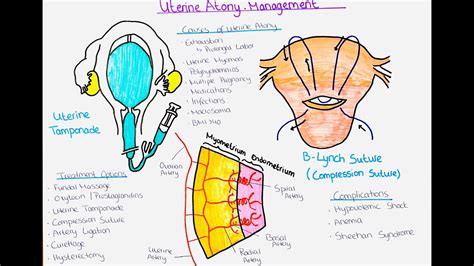 Uterine Atony - Management
Causes of Uterine Atony
- Exhaustion
↳ Prolonged Labor
- Uterine Myomas
- Polyhydramnios
- Multiple Pregnancy
- Medications
- Infections
- Macrosomia
- BMI >40
Uterine
Tamponade
B-Lynch Suture
(Compression Suture)
Treatment Options
- Fundal Massage
- Oxytocin / Prostaglandins
- Uterine Tamponade
- Compression Suture
- Artery Ligation
- Curettage
- Hysterectomy
Myometrium
Endometrium
Ovarian
Artery
Spiral
Artery
Basal
Artery
Radial
Artery
Uterine
Artery
Complications
- Hypovolemic Shock
- Anemia
- Sheehan Syndrome